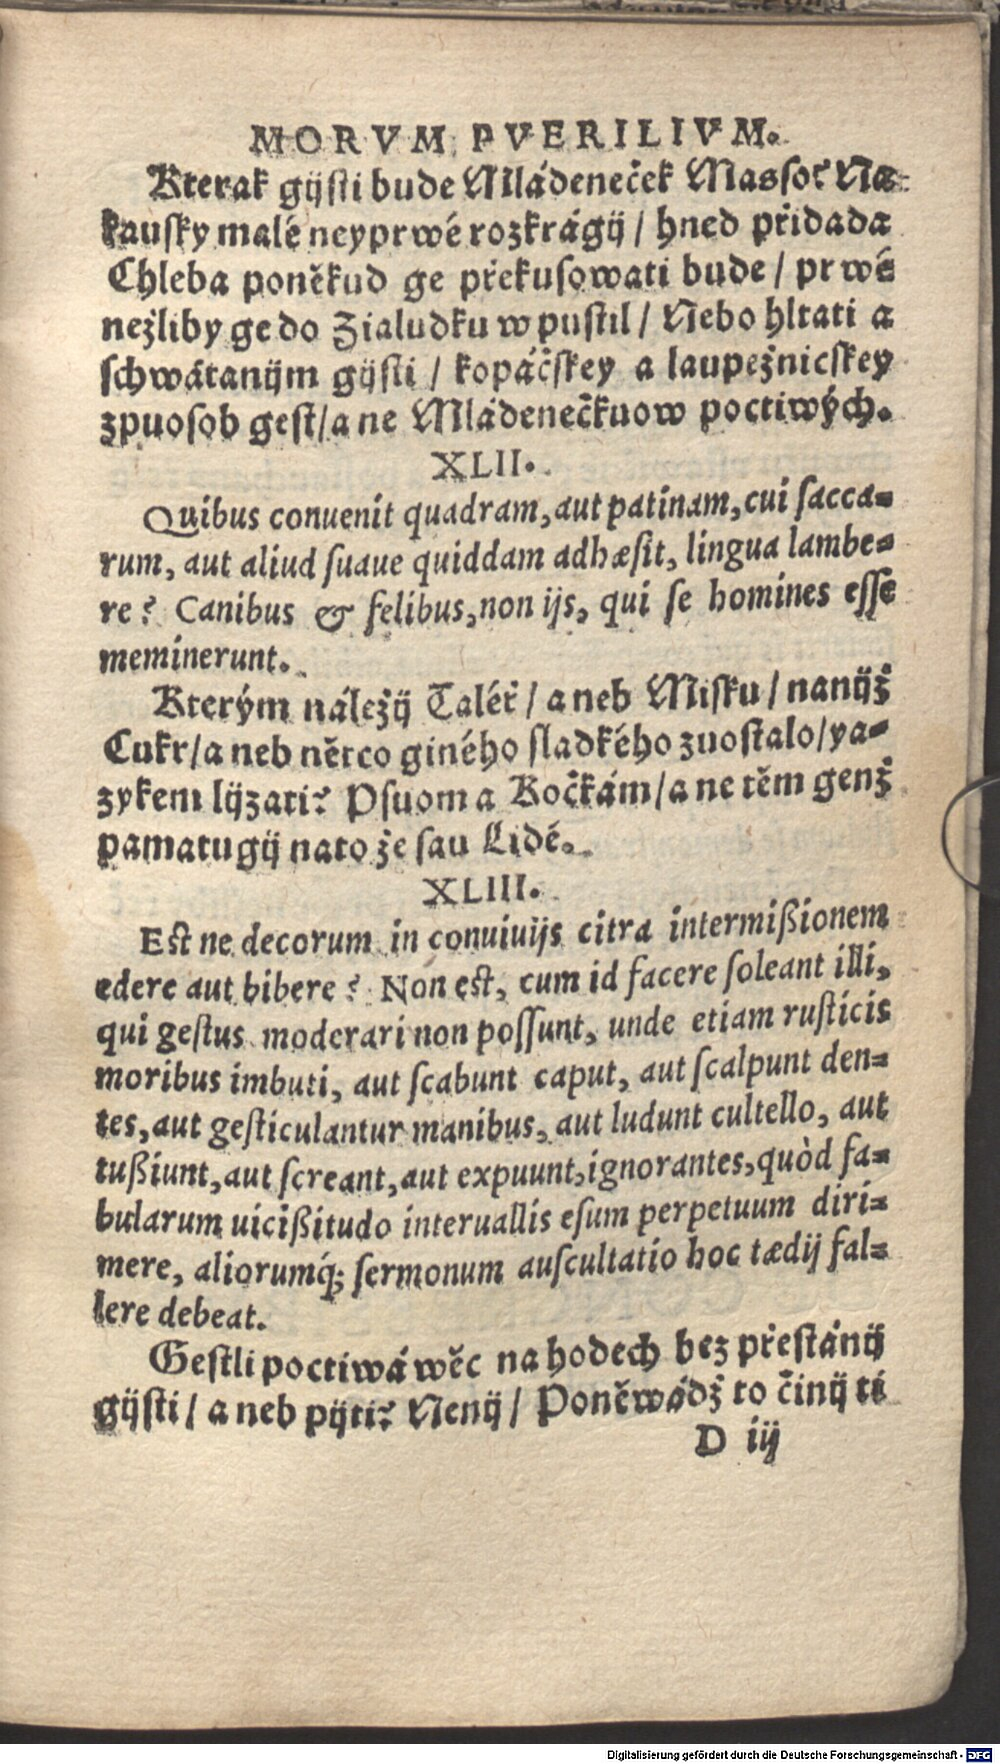 MORVM PVERILIVM.
Kterak gijsti bude Mládeneček Masso? Na
kausky malé neyprwé rozkrágij / hned přidada
Chleba poněkud ge překusowati bude / prwé
nežliby ge do Zialudku wpustil / Nebo hltati a
schwátanijm gijsti / kopáčskey a laupežnicskey
zpuosob gest / a ne Mládenečkuow poctiwých.
XLII.
Quibus conuenit quadram, aut patinam, cui sacca-
rum, aut aliud suaue quiddam adhæsit, lingua lambe-
re? Canibus & felibus, non ijs, qui se homines esse
meminerunt.
Kterým náležij Taléř / aneb Misku / nanijž
Cukr / aneb něrco giného sladkého zuostalo / ya-
zykem lijzati? Psuom a Kočkám / a ne těm genž
pamatugij nato že sau Lidé.
XLIII.
Est ne decorum in conuiuijs citra intermißionem
edere aut bibere? Non est, cum id facere soleant illi,
qui gestus moderari non possunt, unde etiam rusticis
moribus imbuti, aut scabunt caput, aut scalpunt den-
tes, aut gesticulantur manibus, aut ludunt cultello, aut
tußiunt, aut screant, aut expuunt, ignorantes, quòd fa-
bularum uicißitudo interuallis esum perpetuum diri-
mere, aliorumq́; sermonum auscultatio hoc tædij fal-
lere debeat.
Gestli poctiwá wěc na hodech bez přestánij
gijsti / aneb pijti? Nenij / Poněwádž to činij ti
D iij
Digitalisierung gefördert durch die Deutsche Forschungsgemeinschaft - DFG